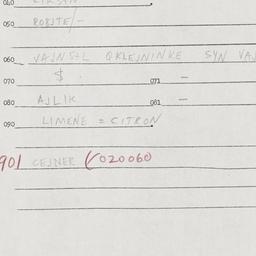 040
050 ROBJTE/-
060 VAJNSEL SYN VAJ
070 $ 071 -
080 AJLIK 081 -
090 LIMENE = CITRON
901 CEJNER (/020060